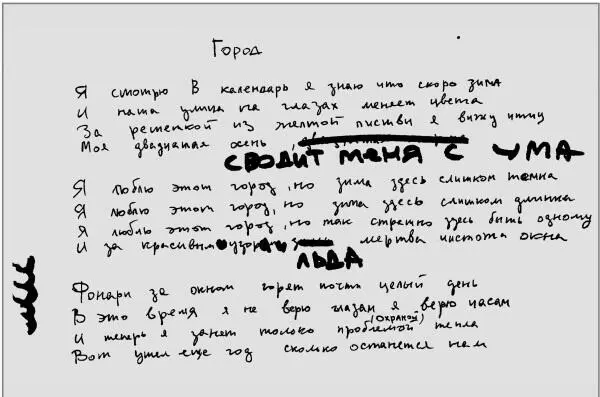 Город
Я смотрю В календарь я знаю что скоро зима
И наша улица на глазах меняет цвета
За решеткой из желтой листвы я вижу птицу
Моя двадцатая осень
СВОДИТ МЕНЯ С УМА
Я люблю этот город, но зима здесь слишком темна
Я люблю этот город, но зима здесь слишком длинна
Я люблю этот город, но так страшно здесь быть одному
И за красивым мертва чистота окна
ЛЬДА
Фонари за окном горят почти целый день
В это время я не верю глазам я верю часам
(охраной)
И теперь я занят только проблемой тепла
Вот ушел еще год сколько останется нам